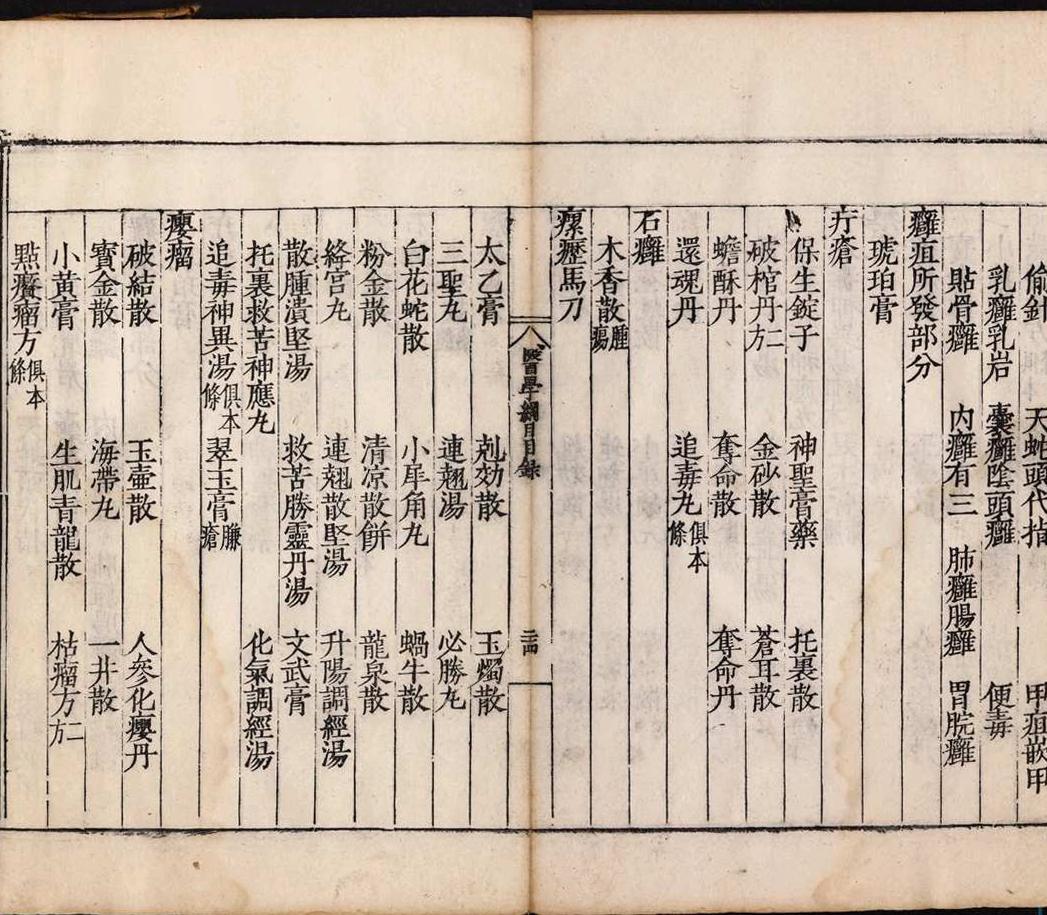 偷針 天蛇頭代指 甲疽嵌甲
乳癰乳岩 囊癰陰頭癰 便毒
貼骨癰 内癰有三 肺癰腸癰 胃脘癰
癰疽所發部分
琥珀膏
疔瘡
保生錠子 神聖膏藥 托裏散
破棺丹方二 金砂散 蒼耳散
蟾酥丹 奪命散 奪命丹
還魂丹 追毒丸俱本條
石癰
木香散腫瘍
瘰癧馬刀
醫學綱目目録 三四
太乙膏 剋効散 玉燭散
三聖丸 連翹湯 必勝丸
白花蛇散 小犀角丸 蝸牛散
粉金散 清凉散餅 龍泉散
絳宫丸 連翹散堅湯 升陽調經湯
散腫潰堅湯 救苦勝靈丹湯 文武膏
托裏救苦神應丸 化氣調經湯
追毒神異湯俱本條 翠玉膏臁瘡
癭瘤
破結散 玉壷散 人參化癭丹
寳金散 海帶丸 一井散
小黄膏 生肌青龍散 枯瘤方二
點癭瘤方俱本條